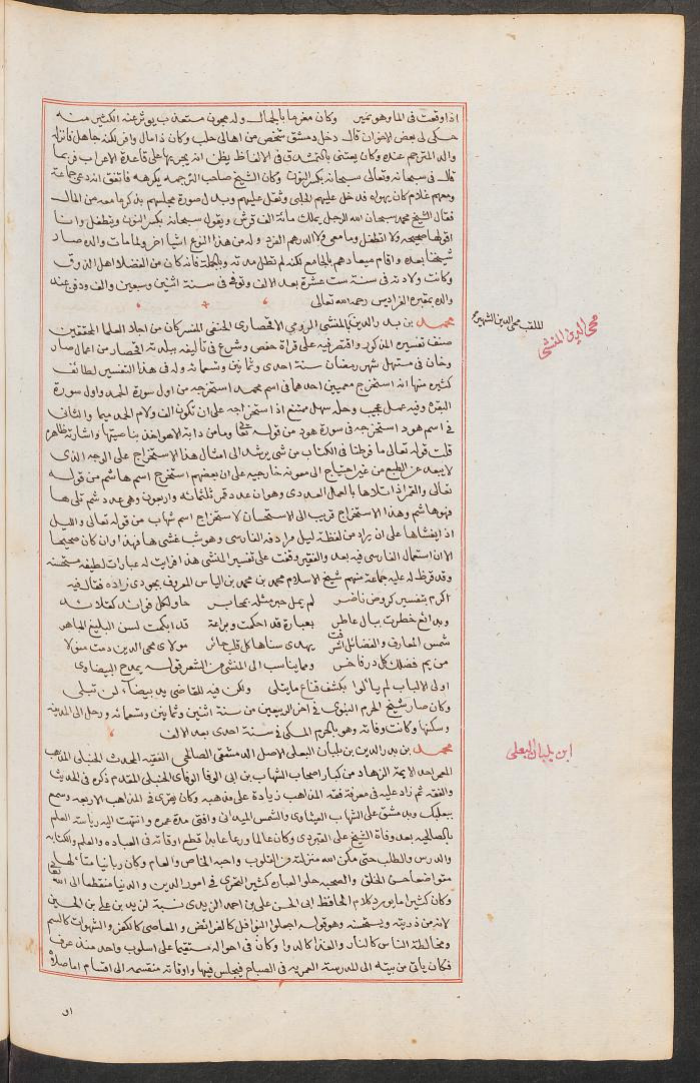 اذا وقعت في الماء وهو نمير وكان مغرما بالجمال وله مجون مستعذب يوثر عنه الكثير منه
حكى لي بعض الاخوان قال دخل دمشق شخص من اهالي حلب وكان ذا مال وافر لكنه جاهل فانزله
والد المترجم عنده وكان يعتني بالتشدق في الالفاظ يظن انه يجريها على قاعدة الاعراب فربما
قال في سبحانه وتعالى سبحانه بكسر النون وكان الشيخ صاحب الترجمه يكرهه فاتفق انه دعى جماعة
ومعهم غلام كان يهواه فدخل عليهم الحلبي وثقل عليهم وبدل صورة مجلسهم بذكر ما معه من المال
فقال الشيخ محمد سبحان الله الرجل يملك مائة الف قرش ويقول سبحانه بكسر النون ويتطفل وانا
اقولها صحيحه ولا اتطفل وما معي ولا الدرهم الفرد وله من هذا النوع اشيا اخر ولما مات والده صار
شيخنا بعده واقام ميعادهم بالجامع لكنه لم تطل مدته وبالجملة فانه كان من الفضلا اهل الذوق
وكانت ولادته في سنة ست عشرة بعد الالف وتوفي في سنة اثنين وسبعين والف ودفن عند
والده بمقبرة الفراديس رحمه الله تعالى
محمد بن بدر الدين المنشي الرومي الاقحصاري الحنفي المفسر كان من اجلاء العلما المحققين
الملقب محيى الدين الشهير
محيى الدين المنشي
صنف تفسيره المذكور واقتصر فيه على قراة حفص وشرع في تاليفه ببلدته اقحصار من اعمال صار
وخان في مستهل شهر رمضان سنة احدى وثمانين وتسعمائة وله في هذا التفسير لطائف
كثيره منها انه استخرج معميين احدهما في اسم محمد استخرجه من اول سورة الحمد واول سورة
البقرة وفيه عمل عجيب وحله سهل ممتنع اذ استخراجه على ان تكون الف ولام الحمد ميما والثاني
في اسم هود استخرجه في سورة هود من قوله تعالى وما من دابة الا هو اخذ بناصيتها واشارته ظاهر
قلت قوله تعالى ما فرطنا في الكتاب من شي يرشد الى امثال هذا الاستخراج على الوجه الذي
لا يبعد عن الطبع من غير احتياج الى معونه خارجيه على ان بعضهم استخرج اسم هاشم من قوله
تعالى والقمر اذا تلاها بالعمل العددي وهو ان عدد قمر ثلثمائه واربعون وهي عدد شم تلى ها
فهو هاشم وهذا الاستخراج قريب الى الاستحسان لاستخراج اسم شهاب من قوله تعالى والليل
اذا يغشاها على ان يراد من لفظة ليل مرادفه الفارسي وهو شب غشي ها فهذا وان كان صحيحا
الا ان استعمال الفارسي فيه بعد والفقير وقفت على تفسير المنشي هذا فرايت له عبارات لطيفه مستحسنه
وقد قرظ له عليه جماعة منهم شيخ الاسلام محمد بن محمد بن الياس المعروف بجوي زاده فقال فيه
اكرم بتفسير كروض ناضر لم يمل حبر مثله بمحابر حاو لكل فرائد كقلائد
وبدائع خطرت ببال عاطر بعبارة قد احكمت وبراعة قد ابكمت لسن البليغ الماهر
شمس المعارف والفضائل اشرقت يهدى سناها كل قلب حائر مولاى محي الدين دمت منولا
من يم فضلك كل در فاخر ومما يناسب الى المنشي من الشعر قوله يمدح البيضاوي
اولى الالباب لم ياتوا بكشف قناع ما يتلى ولكن فيه للقاضي يد بيضاء لن تبلى
وكان صار شيخ الحرم النبوي في اخر الربيعين من سنة اثنين وثمانين وتسعمائه ورحل الى المدينه
وسكنها وكانت وفاته وهو بالحرم المكي في سنة احدى بعد الالف
محمد بن بدر الدين بن بلبان البعلي الاصل الدمشقي الصالحي الفقيه المحدث الحنبلي المذهب
ابن بلبان البعلي
المعمر احد الايمة الزهاد من كبار اصحاب الشهاب بن ابى الوفا الوفاى الحنبلي المقدم ذكره في الحديث
والفقه ثم زاد عليه في معرفة فقه المذاهب زيادة على مذهبه وكان يقرى في المذاهب الاربعه وسمع
ببعلبك وبدمشق على الشهاب العيثاوي والشمس الميداني وافتى مدة عمره وانتهت اليه رياسة العلم
بالصالحيه بعد وفاة الشيخ على القبردي وكان عالما ورعا عابدا قطع اوقاته في العباده والعلم والكتابه
والدرس والطلب حتى مكن الله منزلته من القلوب واحبه الخاص والعام وكان ربانيا متالها
متواضعا حسن الخلق والصحبه حلو العباره كثير التحرى في امور الدين والدنيا منقطعا الى الله تعالى
وكان كثيرا ما يورد كلام الحافظ ابى الحسن على بن احمد الزيدى نسبة لزيد بن على بن الحسين
لانه من ذريته ويستحسنه وهو قوله اجعلوا النوافل كالفرائض والمعاصي كالكفر والشهوات كالسم
ومخالطة الناس كالنار والغذا كالدوا وكان في احواله مستقيما على اسلوب واحد منذ عرف
فكان ياتى من بيته الى المدرسة العمريه في الصباح فيجلس فيها واوقاته منقسمه الى اقسام اما صلاة
او